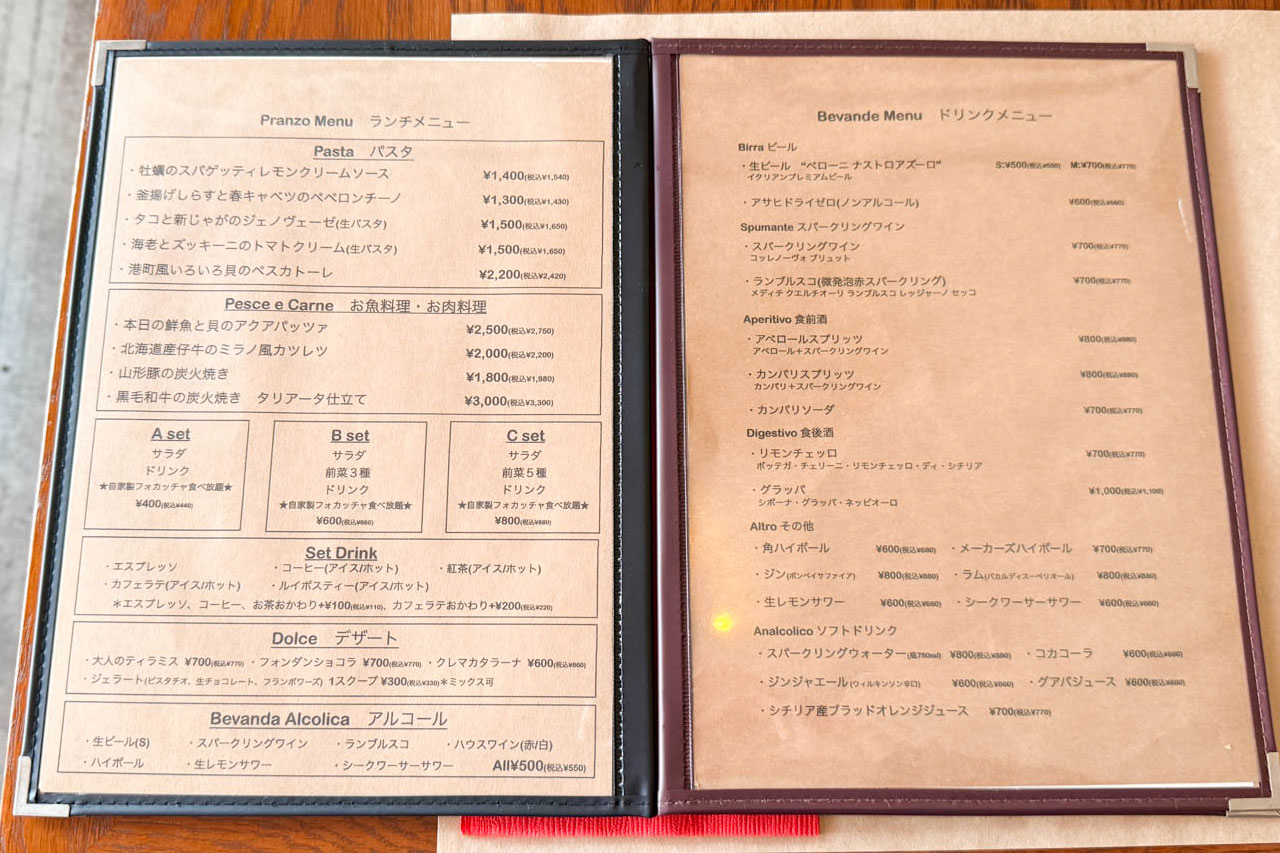 Pranzo Menu ランチメニュー
Pasta パスタ
・牡蠣のスパゲッティレモンクリームソース ¥1,400(税込¥1,540)
・釜揚げしらすと春キャベツのペペロンチーノ ¥1,300(税込¥1,430)
・タコと新じゃがのジェノヴェーゼ(生パスタ) ¥1,500(税込¥1,650)
・海老とズッキーニのトマトクリーム(生パスタ) ¥1,500(税込¥1,650)
・港町風いろいろ貝のペスカトーレ ¥2,200(税込¥2,420)
Pesce e Carne お魚料理・お肉料理
・本日の鮮魚と貝のアクアパッツァ ¥2,500(税込¥2,750)
・北海道産仔牛のミラノ風カツレツ ¥2,000(税込¥2,200)
・山形豚の炭火焼き ¥1,800(税込¥1,980)
・黒毛和牛の炭火焼き タリアータ仕立て ¥3,000(税込¥3,300)
A set
サラダ
ドリンク
★自家製フォカッチャ食べ放題★
¥400(税込¥440)
B set
サラダ
前菜３種
ドリンク
★自家製フォカッチャ食べ放題★
¥600(税込¥660)
C set
サラダ
前菜５種
ドリンク
★自家製フォカッチャ食べ放題★
¥800(税込¥880)
Set Drink
・エスプレッソ ・コーヒー(アイス/ホット) ・紅茶(アイス/ホット)
・カフェラテ(アイス/ホット) ・ルイボスティー(アイス/ホット)
＊エスプレッソ、コーヒー、お茶おかわり+¥100(税込¥110)、カフェラテおかわり+¥200(税込¥220)
Dolce デザート
・大人のティラミス ¥700(税込¥770) ・フォンダンショコラ ¥700(税込¥770) ・クレマカタラーナ ¥600(税込¥660)
・ジェラート(ピスタチオ、生チョコレート、フランボワーズ) 1スクープ ¥300(税込¥330)＊ミックス可
Bevanda Alcolica アルコール
・生ビール(S) ・スパークリングワイン ・ランブルスコ ・ハウスワイン(赤/白)
・ハイボール ・生レモンサワー ・シークワーサーサワー All¥500(税込¥550)
Bevande Menu ドリンクメニュー
Birra ビール
・生ビール “ペローニ ナストロアズーロ” S:¥500(税込¥550) M:¥700(税込¥770)
イタリアンプレミアムビール
・アサヒドライゼロ(ノンアルコール) ¥600(税込¥660)
Spumante スパークリングワイン
・スパークリングワイン ¥700(税込¥770)
コッレノーヴォ ブリュット
・ランブルスコ(微発泡赤スパークリング) ¥700(税込¥770)
メディチ クエルチオーリ ランブルスコ レッジャーノ セッコ
Aperitivo 食前酒
・アペロールスプリッツ ¥800(税込¥880)
アペロール＋スパークリングワイン
・カンパリスプリッツ ¥800(税込¥880)
カンパリ＋スパークリングワイン
・カンパリソーダ ¥700(税込¥770)
Digestivo 食後酒
・リモンチェッロ ¥700(税込¥770)
ボッテガ・チェリーニ・リモンチェッロ・ディ・シチリア
・グラッパ ¥1,000(税込¥1,100)
シボーナ・グラッパ・ネッビオーロ
Altro その他
・角ハイボール ¥600(税込¥660) ・メーカーズハイボール ¥700(税込¥770)
・ジン(ボンベイサファイア) ¥800(税込¥880) ・ラム(バカルディスーペリオール) ¥800(税込¥880)
・生レモンサワー ¥600(税込¥660) ・シークワーサーサワー ¥600(税込¥660)
Analcolico ソフトドリンク
・スパークリングウォーター(瓶750ml) ¥800(税込¥880) ・コカコーラ ¥600(税込¥660)
・ジンジャエール(ウィルキンソン辛口) ¥600(税込¥660) ・グアバジュース ¥600(税込¥660)
・シチリア産ブラッドオレンジジュース ¥700(税込¥770)